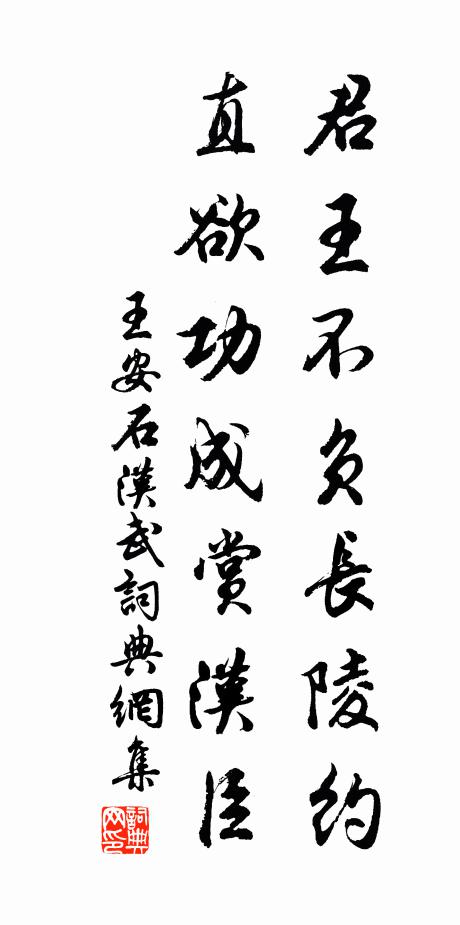 君王不負長陵約
直欲功成賞漢臣
王安石漢武詞典網集
詞典網印